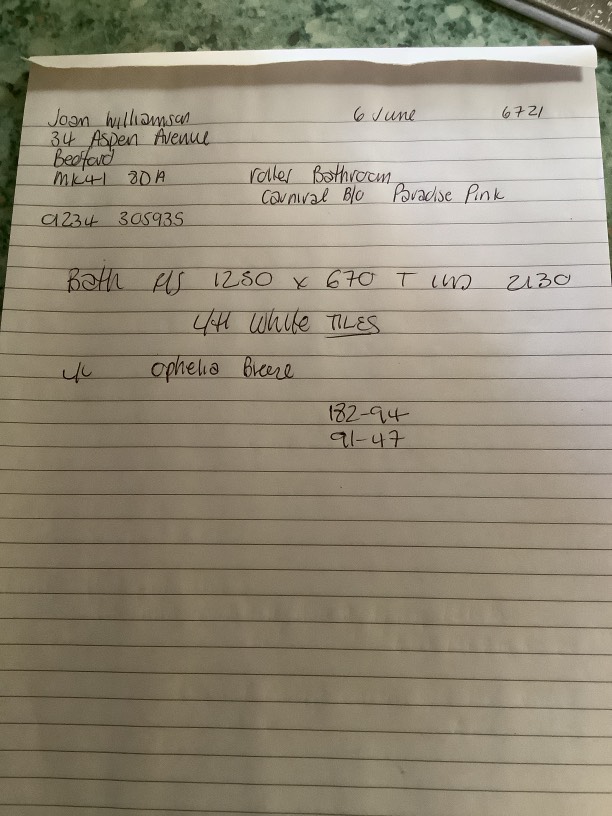 Joan Williamson 6 June 6721
34 Aspen Avenue
Bedford
MK41 8DA roller Bathroom
Carnival B/O Paradise Pink
01234 305935
Bath 1250 x 670 T 2130
L/H White TILES
Ophelia Breeze
182-94
91-47